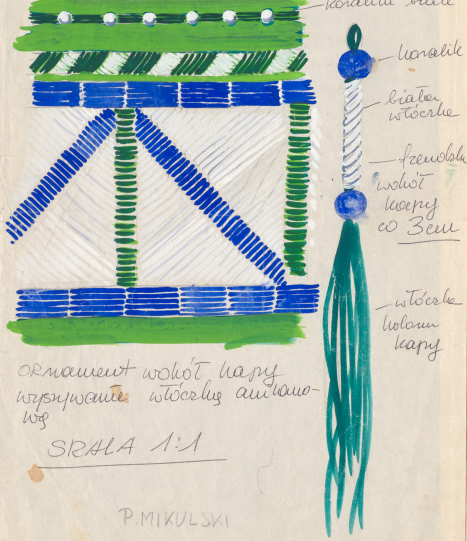 koraliki białe
koralik
biała
włóczka
frendzle
wokół
kapy
co 3cm
włóczka
koloru
kapy
ORnament wokół kapy
wyszywany włóczką anilano-
wą
SKALA 1:1
P. MIKULSKI